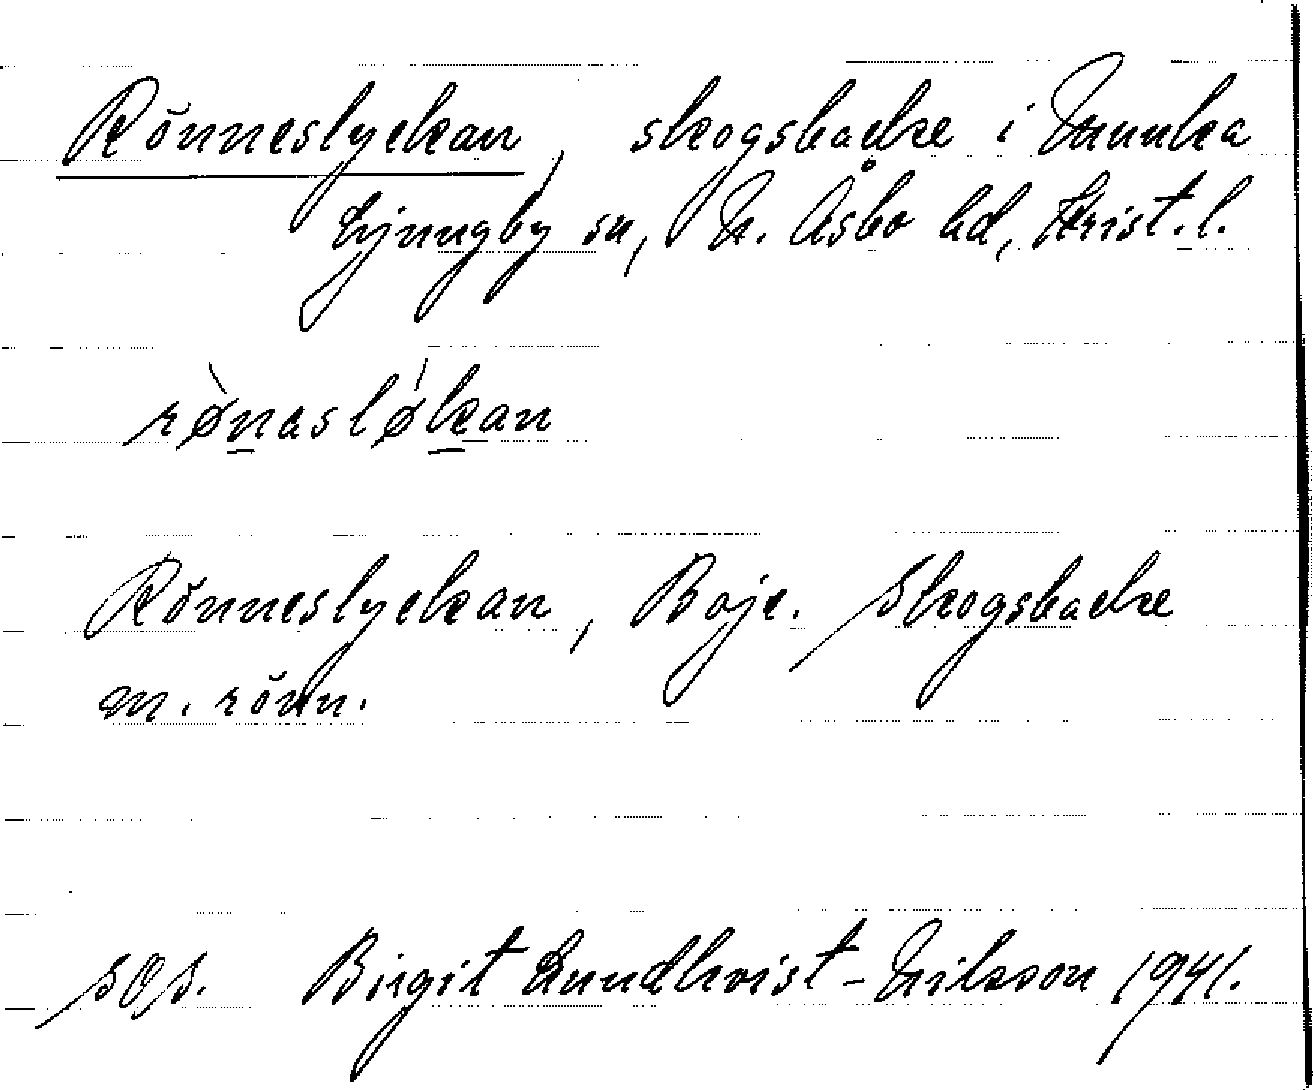 Rönneslyckan, skogsbacke i Munka
Ljungby sn, N. Åsbo hd, Krist. l.
rø̀n̲asløḱ̲an
Rönneslyckan, Boje. Skogsbacke
m. rönn.
SOS. Birgit Lundkvist-Nilsson 1941.